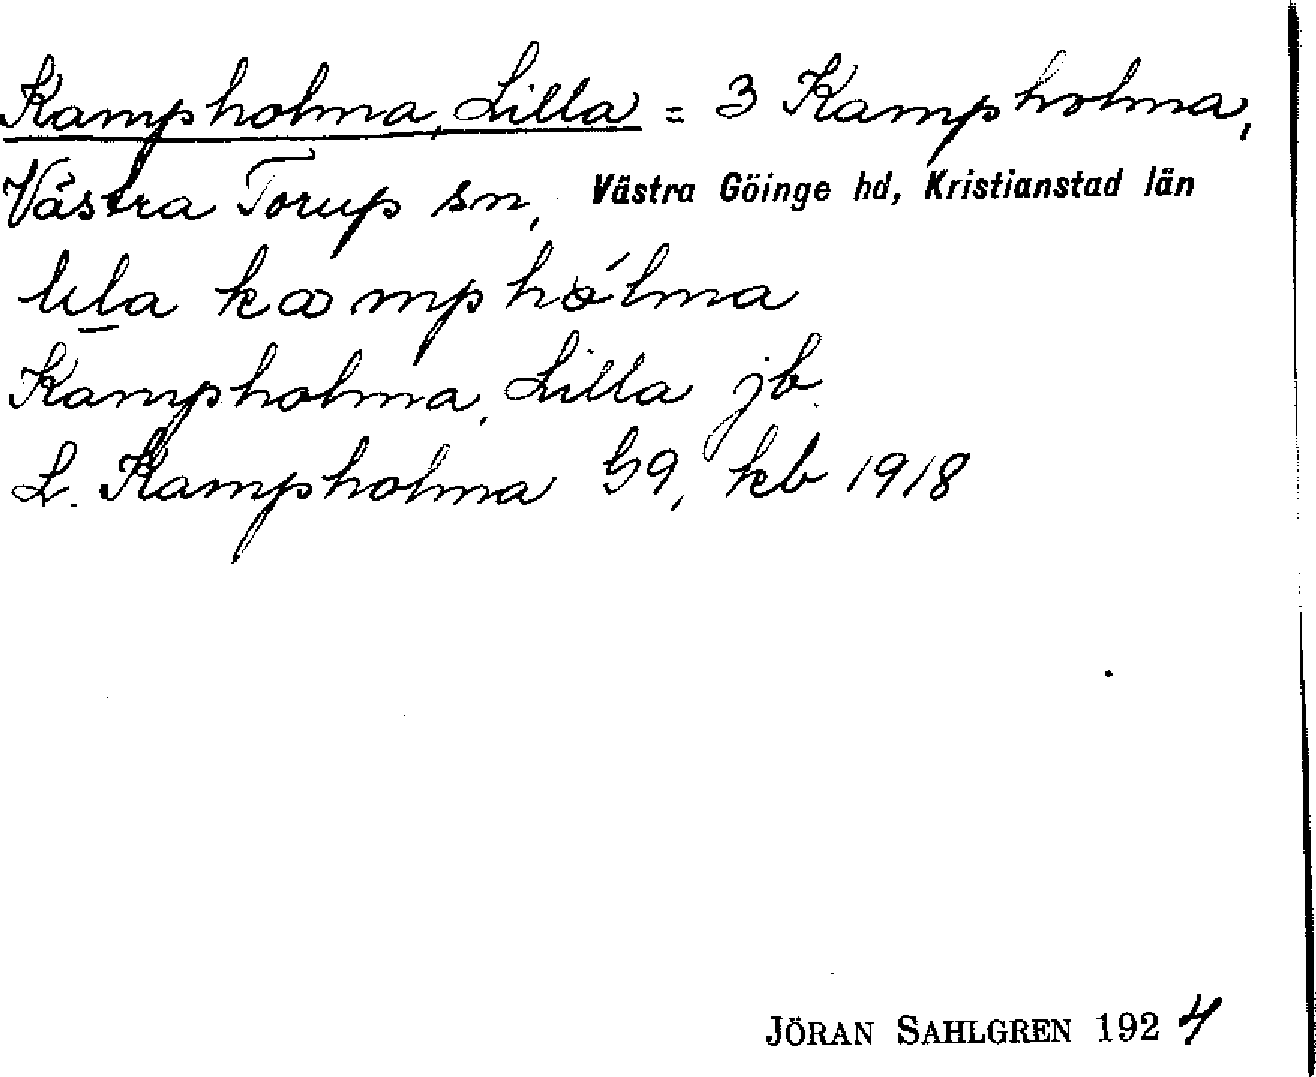 Kampholma, Lilla = 3 Kampholma,
Västra Torup sn, Västra Göinge hd, Kristianstad län
Kampholma, Lilla jb.
L. Kampholma G9, kb 1918
JÖRAN SAHLGREN 1924